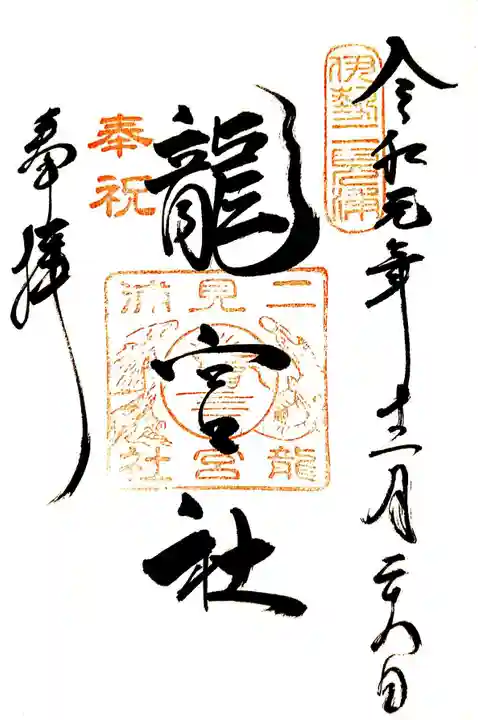 令和元年十二月二十八日
伊勢二見浦
龍宮社
奉祝
二見浦
龍宮社
奉拝